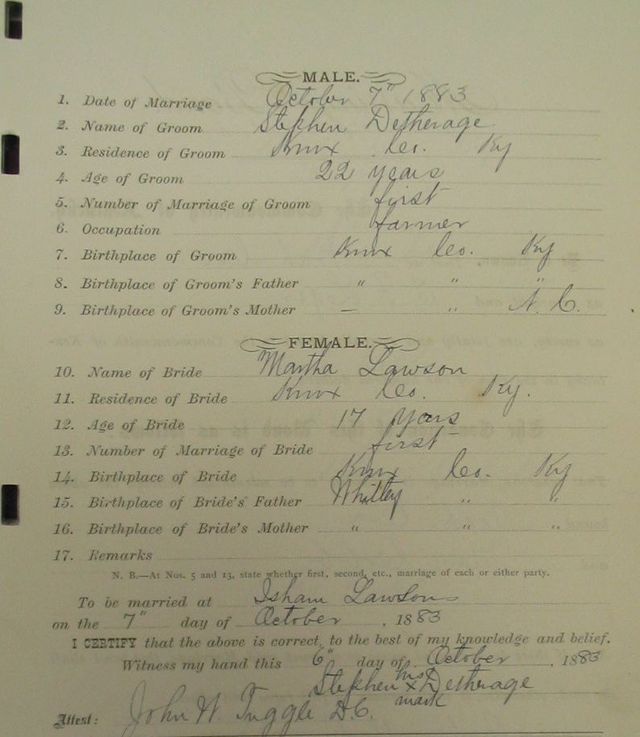 MALE.
1. Date of Marriage October 7" 1883
2. Name of Groom Stephen Detherage
3. Residence of Groom Knox Co. Ky
4. Age of Groom 22 years
5. Number of Marriage of Groom first
6. Occupation farmer
7. Birthplace of Groom Knox Co. Ky
8. Birthplace of Groom's Father " " "
9. Birthplace of Groom's Mother — " N. C.
FEMALE.
10. Name of Bride Martha Lawson
11. Residence of Bride Knox Co. Ky.
12. Age of Bride 17 years
13. Number of Marriage of Bride first
14. Birthplace of Bride Knox Co. Ky
15. Birthplace of Bride's Father Whitley " "
16. Birthplace of Bride's Mother " " "
17. Remarks
N. B.—At Nos. 5 and 13, state whether first, second, etc., marriage of each or either party.
To be married at Isham Lawsons
on the 7" day of October, 1883
I CERTIFY that the above is correct, to the best of my knowledge and belief.
Witness my hand this 6" day of October, 1883
Stephen his x mark Detherage
Attest: John W. Tuggle D.C.